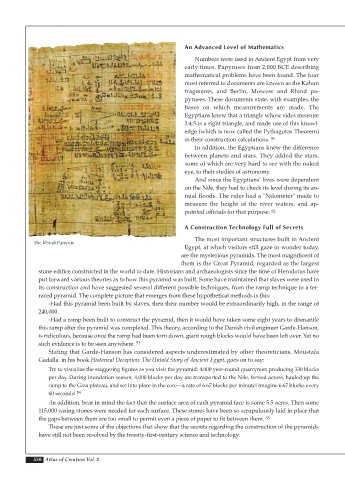 An Advanced Level of Mathematics
Numbers were used in Ancient Egypt from very
early times. Papyruses from 2,000 BCE describing
mathematical problems have been found. The four
most referred to documents are known as the Kahun
fragments, and Berlin, Moscow and Rhind pa-
pyruses. These documents state, with examples, the
bases on which measurements are made. The
Egyptians knew that a triangle whose sides measure
3:4:5 is a right triangle, and made use of this knowl-
edge (which is now called the Pythagoras Theorem)
in their construction calculations.
In addition, the Egyptians knew the difference
between planets and stars. They added the stars,
some of which are very hard to see with the naked
eye, to their studies of astronomy.
And since the Egyptians' lives were dependent
on the Nile, they had to check its level during its an-
nual floods. The ruler had a "Nilometer" made to
measure the height of the river waters, and ap-
pointed officials for that purpose.
A Construction Technology Full of Secrets
The Rhind Papyrus
The most important structures built in Ancient
Egypt, at which visitors still gaze in wonder today,
are the mysterious pyramids. The most magnificent of
them is the Great Pyramid, regarded as the largest
stone edifice constructed in the world to date. Historians and archaeologists since the time of Herodotus have
put forward various theories as to how this pyramid was built. Some have maintained that slaves were used in
its construction and have suggested several different possible techniques, from the ramp technique to a ter-
raced pyramid. The complete picture that emerges from these hypothetical methods is this:
-Had this pyramid been built by slaves, then their number would be extraordinarily high, in the range of
240,000.
-Had a ramp been built to construct the pyramid, then it would have taken some eight years to dismantle
this ramp after the pyramid was completed. This theory, according to the Danish civil engineer Garde-Hanson,
is ridiculous, because once the ramp had been torn down, giant rough blocks would have been left over. Yet no
such evidence is to be seen anywhere.
Stating that Garde-Hanson has considered aspects underestimated by other theoreticians, Moustafa
Gadalla, in his book Historical Deception: The Untold Story of Ancient Egypt, goes on to say:
Try to visualize the staggering figures as you visit the pyramid: 4,000 year-round quarrymen producing 330 blocks
per day. During inundation season, 4,000 blocks per day are transported to the Nile, ferried across, hauled up the
ramp to the Giza plateau, and set into place in the core—a rate of 6.67 blocks per minute! Imagine 6.67 blocks every
60 seconds!
-In addition, bear in mind the fact that the surface area of each pyramid face is some 5.5 acres. Then some
115,000 casing stones were needed for each surface. These stones have been so scrupulously laid in place that
the gaps between them are too small to permit even a piece of paper to fit between them.
These are just some of the objections that show that the secrets regarding the construction of the pyramids
have still not been resolved by the twenty-first-century science and technology.
550 Atlas of Creation Vol. 2